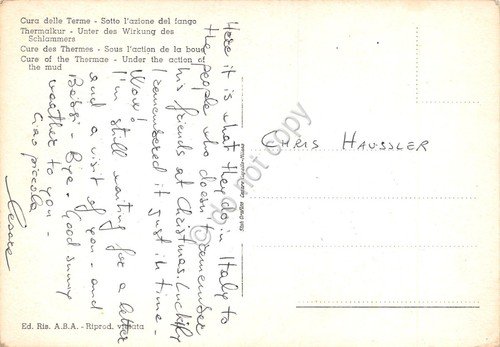 Cura delle Terme - Sotto l'azione del fango
Thermalkur - Unter des Wirkung des
Schlammers
Cure des Thermes - Sous l'action de la boue
Cure of the Thermae - Under the action of
the mud
Here it is what they do in Italy to
the people who doesn't remember
his friends at Christmas. Luckily
I remembered it just in time -
Wow!
I'm still waiting for a letter
and a visit of you - and
Bye. Good sunny
weather to you -
Ciao piccola
Cesare
CHRIS HAUSSLER
© do not copy
Ed. Ris. A.B.A. - Riprod. vietata